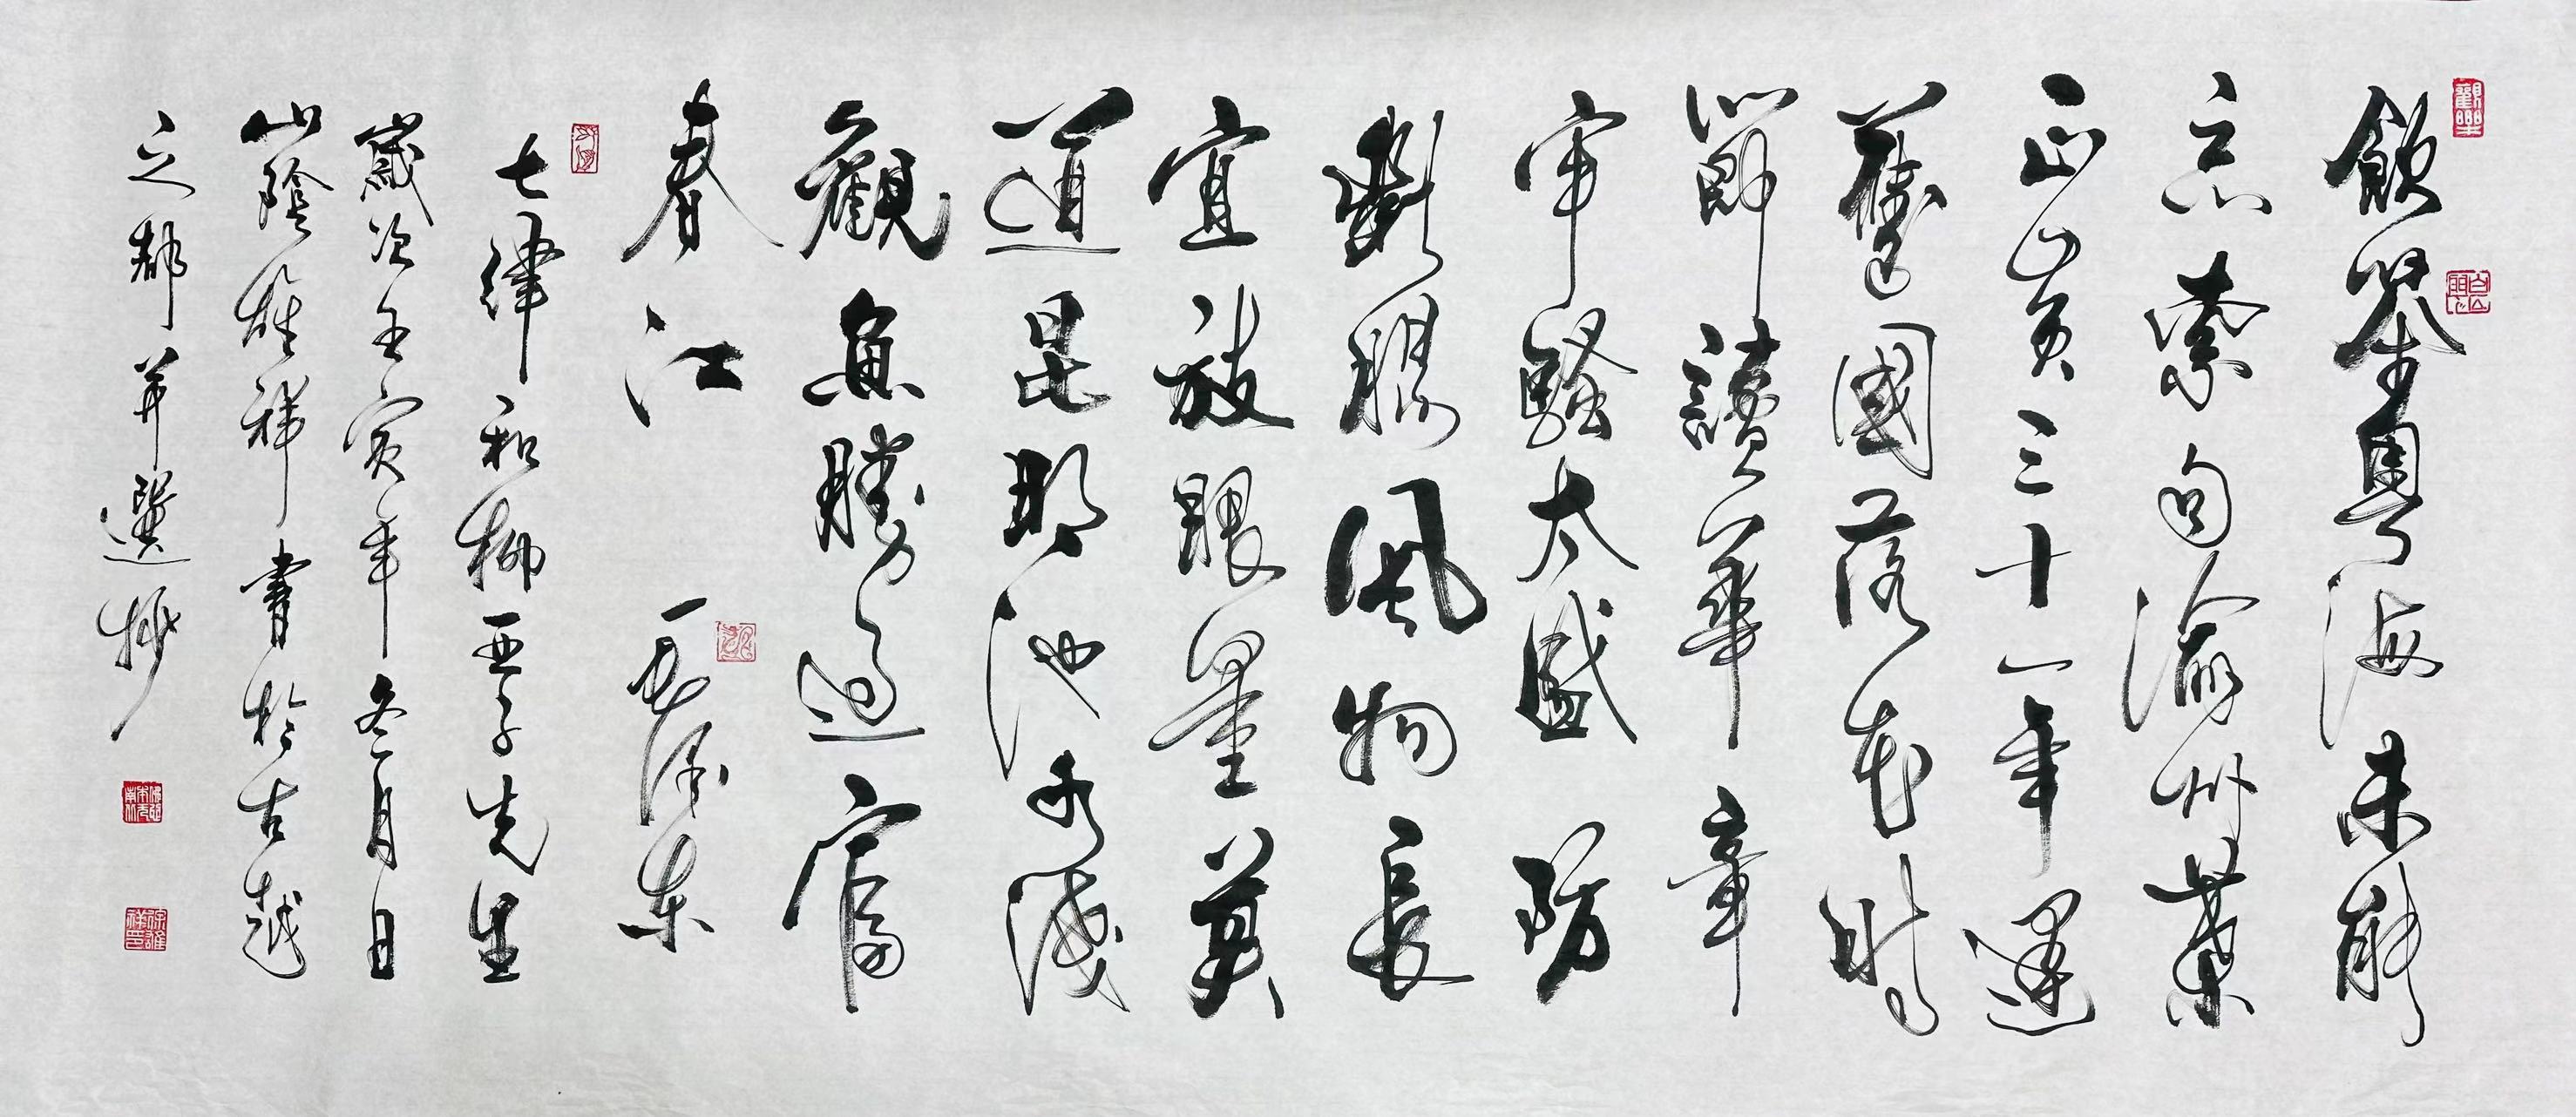 飲茶粵海未能
忘索句渝州葉
正黃三十一年還
舊國落花時
節讀華章
牢騷太盛防
斷腸風物長
宜放眼量莫
道昆明池水淺
觀魚勝過富
春江 一毛澤東
七律 和柳亞子先生
歲次壬寅年冬月日
山陰雄祥書於古越
之都并選抄
徐雄祥印